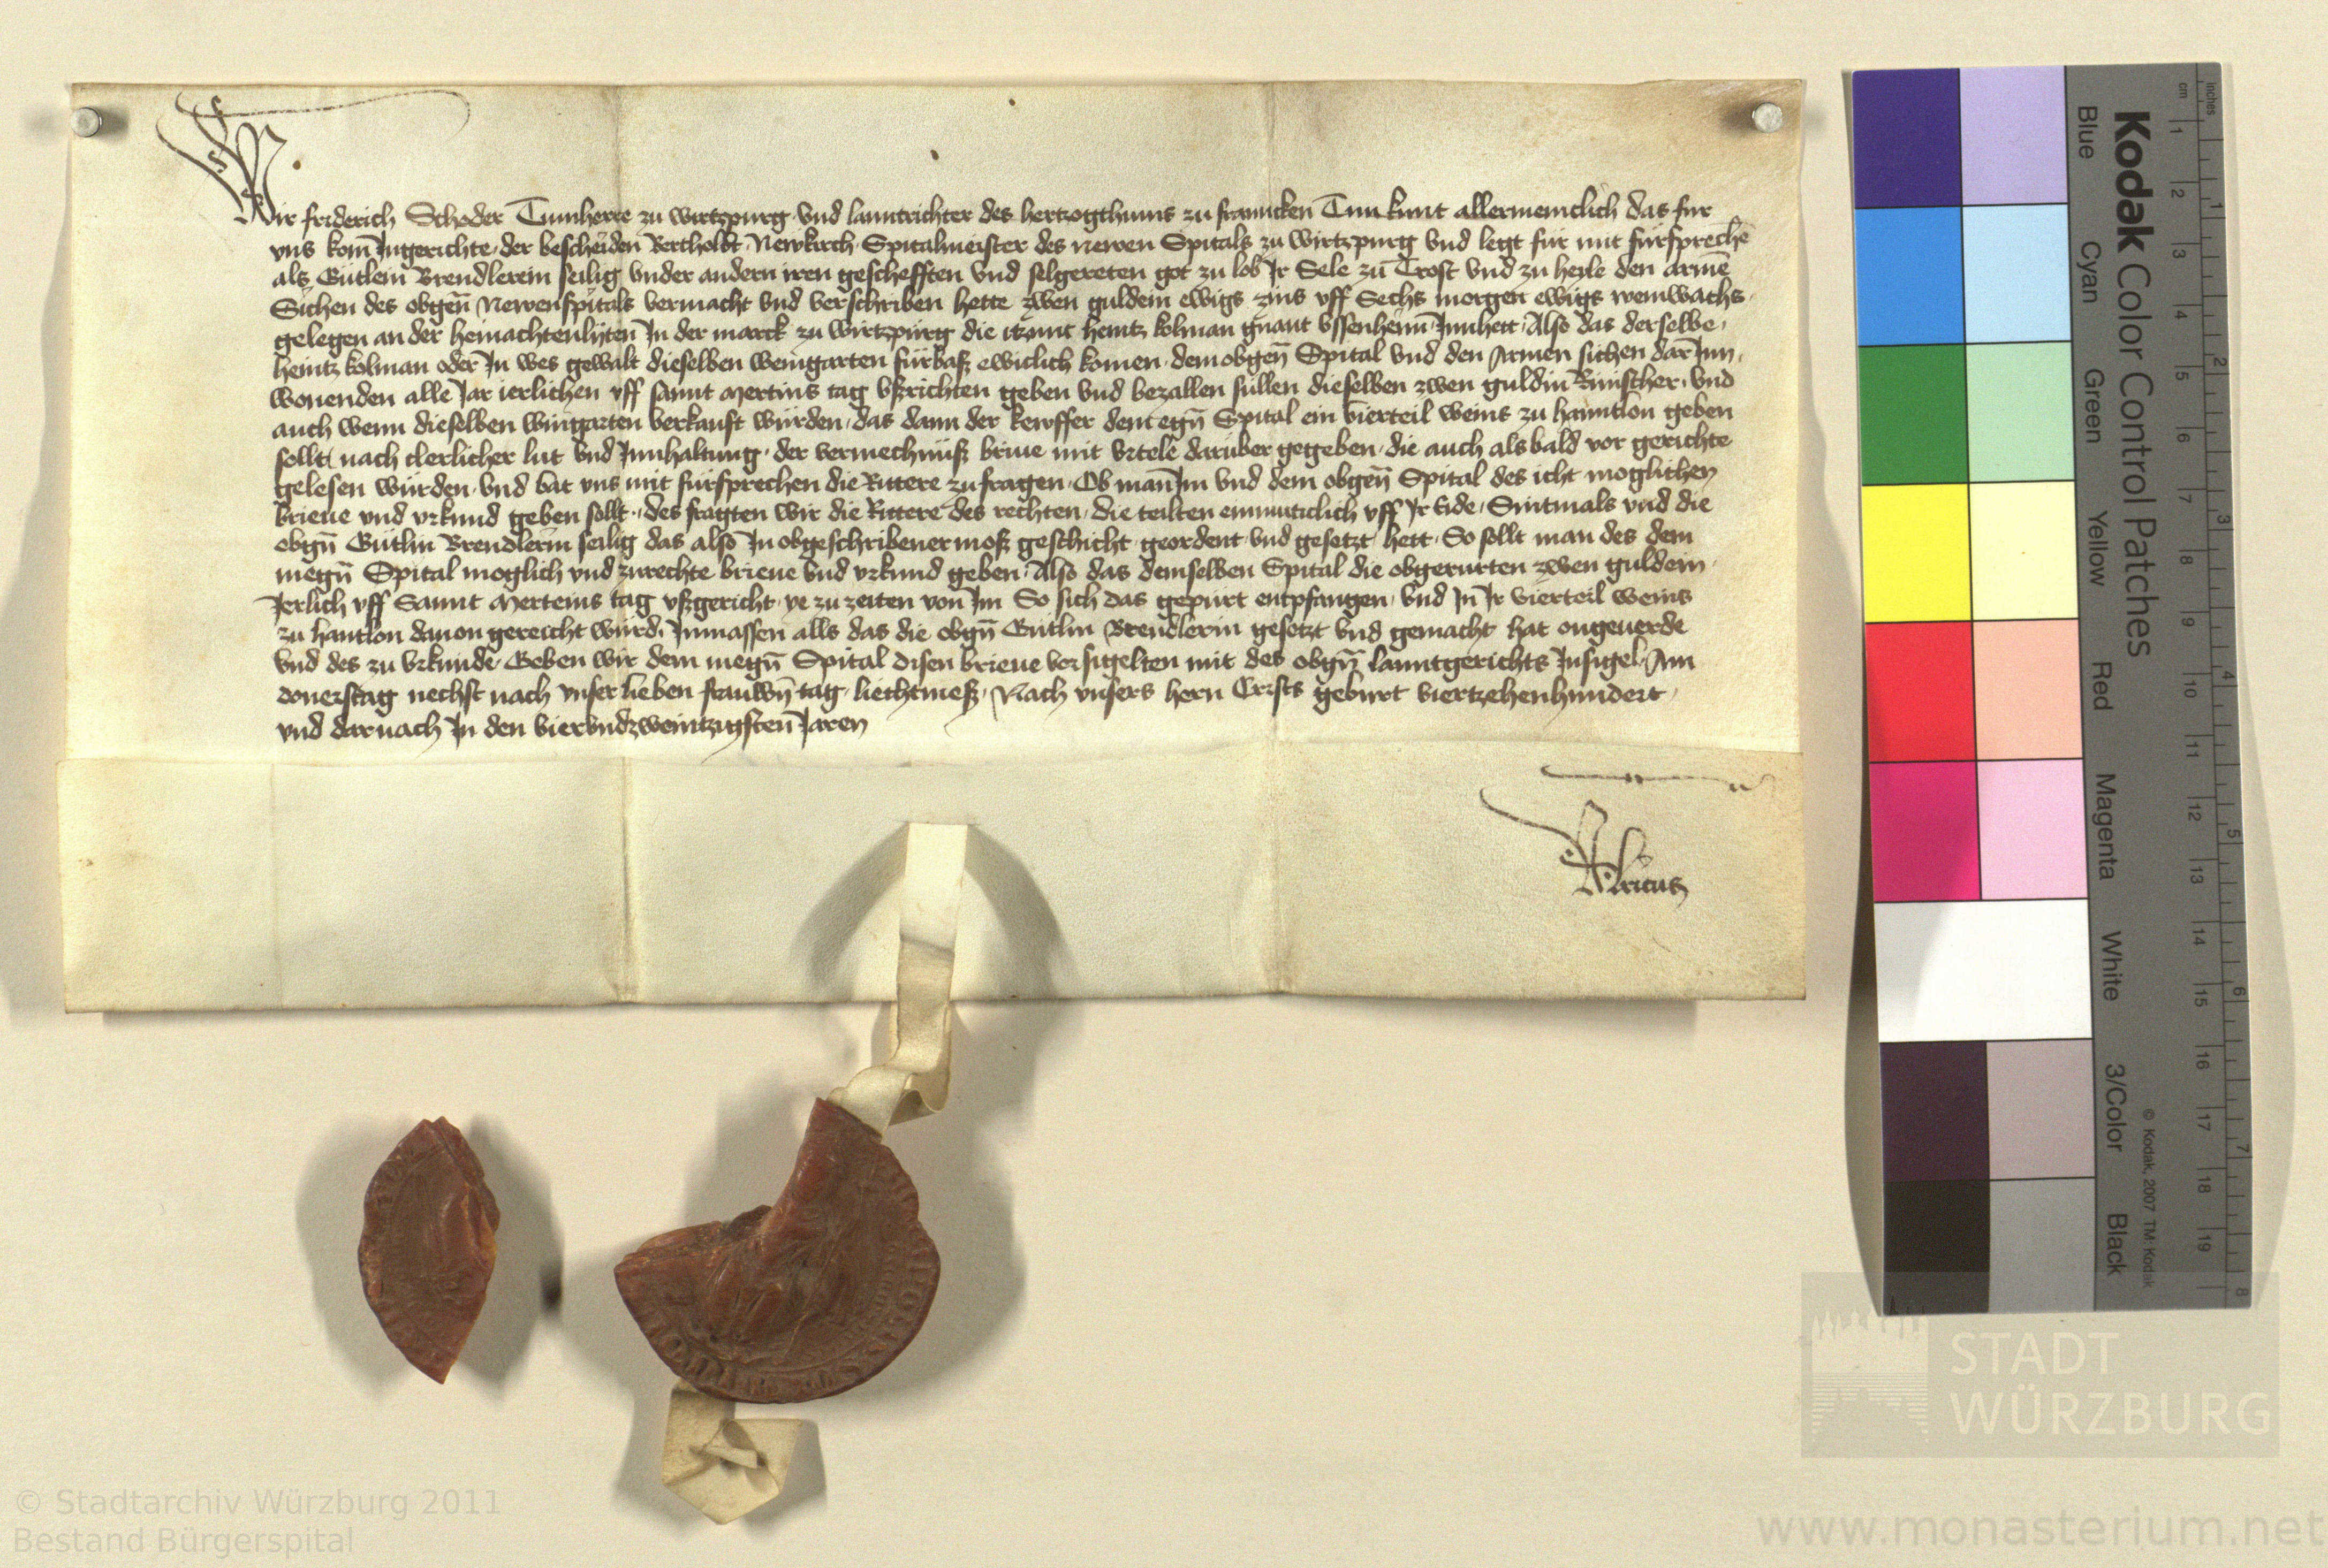 Wir friderich Schoder Tumherre zu wirtzpurg vnd lanntrichter des hertzogthums zu franncken Tun kunt allermenclich das fur
vns kom̄ Ingerichte der bescheiden Bertholdt Newkirch Spitalmeister des newen Spitals zu wirtzpurg vnd legt für mit fürspreche
als Gütlein Brendlerein seilig vnder andern iren geschefften vnd selgereten got zu lob Ir Sele zu Trost vnd zu heile den arme̅
Sichen des obgen̅ Newenspitals vermacht vnd verschriben hette zwen guldein ewigs zins vff Sechs morgen ewigs weinwachs
gelegen an der heinachtenlyten In der marck zu wirtzpurg die itzunt heintz kolman gnant vssenheim Innhett Also das derselbe
heintz kolman oder In wes gewalt dieselben weingarten fürbaß ewiclich komen dem obgen̅ Spital vnd den Armen sichen dar Inn
wonenden alle Jar ierlichen vff sannt Mertins tag vßrichten geben vnd bezallen sullen dieselben zwen guldin Rinischer vnd
auch wenn dieselben wingarten verkauft würden das dann der kewffer dem egn̅ Spital ein vierteil weins zu hanntlon geben
sollt nach clerlicher lut vnd Innhaltung der vermechnüß briue mit vrteile daruber gegeben die auch als bald vor gerichte
gelesen würden vnd bat vns mit fürsprechen die Rittere zu fragen Ob man Im vnd dem obgen̅ Spital des icht moglichen
brieue vnd vrkund geben sollt des fragten wir die Rittere des rechten die teilten einmuticlich vff Ir Eide Sintmals vnd die
obgn̅ Gütlin Brendlerin seilig das also In obgeschribener moß geschicht geordent vnd gesetzt hett So sollt man des dem
megn̅ Spital moglich vnd zurechte brieue vnd vrkund geben Also das demselben Spital die obgerurten zwen guldein
Jerlich vff Sannt Merteins tag vßgericht ye zu zeiten von Im So sich das gepürt entpfangen vnd In Ir vierteil weins
zu hantlon dauon gereicht würd Inmassen alls das die obgn̅ Gütlin Brendlerin gesetzt vnd gemacht hat ongeuerde
vnd des zu vrkunde Geben wir dem megn̅ Spital disen brieue versigelten mit des obgn̅ lanntgerichts Insigel Am
donerstag nechst nach vnser lieben frauwn̅ tag liechtmeß Nach vnsers hern Crists geburt viertzehenhundert
vnd darnach In den vierundzweintzigsten Jaren
Kodak Color Control Patches
Blue
Cyan
Green
Yellow
Red
Magenta
White
3/Color
Black
© Kodak, 2007 TM: Kodak
cm 1 2 3 4 5 6 7 8 9 10 11 12 13 14 15 16 17 18 19
Inches 1 2 3 4 5 6 7 8
STADT
WÜRZBURG
© Stadtarchiv Würzburg 2011
Bestand Bürgerspital
www.monasterium.net